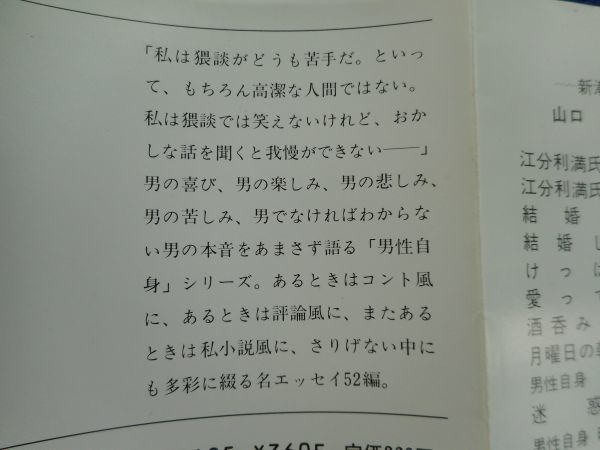 「私は猥談がどうも苦手だ。といっ
て、もちろん高潔な人間ではない。
私は猥談では笑えないけれど、おか
しな話を聞くと我慢ができない――」
男の喜び、男の楽しみ、男の悲しみ、
男の苦しみ、男でなければわからな
い男の本音をあまさず語る「男性自
身」シリーズ。あるときはコント風
に、あるときは評論風に、またある
ときは私小説風に、さりげない中に
も多彩に綴る名エッセイ52編。
山口
江分利満氏
江分利満氏
結婚
結婚し
けっ
愛って
酒呑み
月曜日の
男性自身
迷惑
男性自身